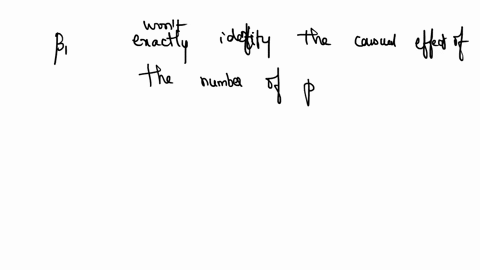 β₁ won't exactly idetify the causal effect of
the number of p